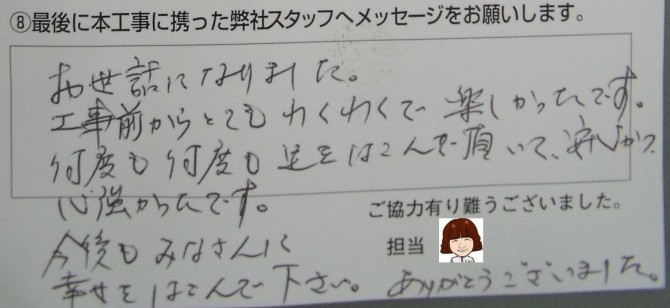 ⑧最後に本工事に携った弊社スタッフへメッセージをお願いします。
お世話になりました。
工事前からとても わくわくで 楽しかったです。
何度も何度も足をはこんで頂いて、安心かつ
心強かったです。
ご協力有り難うございました。
担当
今後もみなさんに
幸せをはこんで下さい。 ありがとうございました。